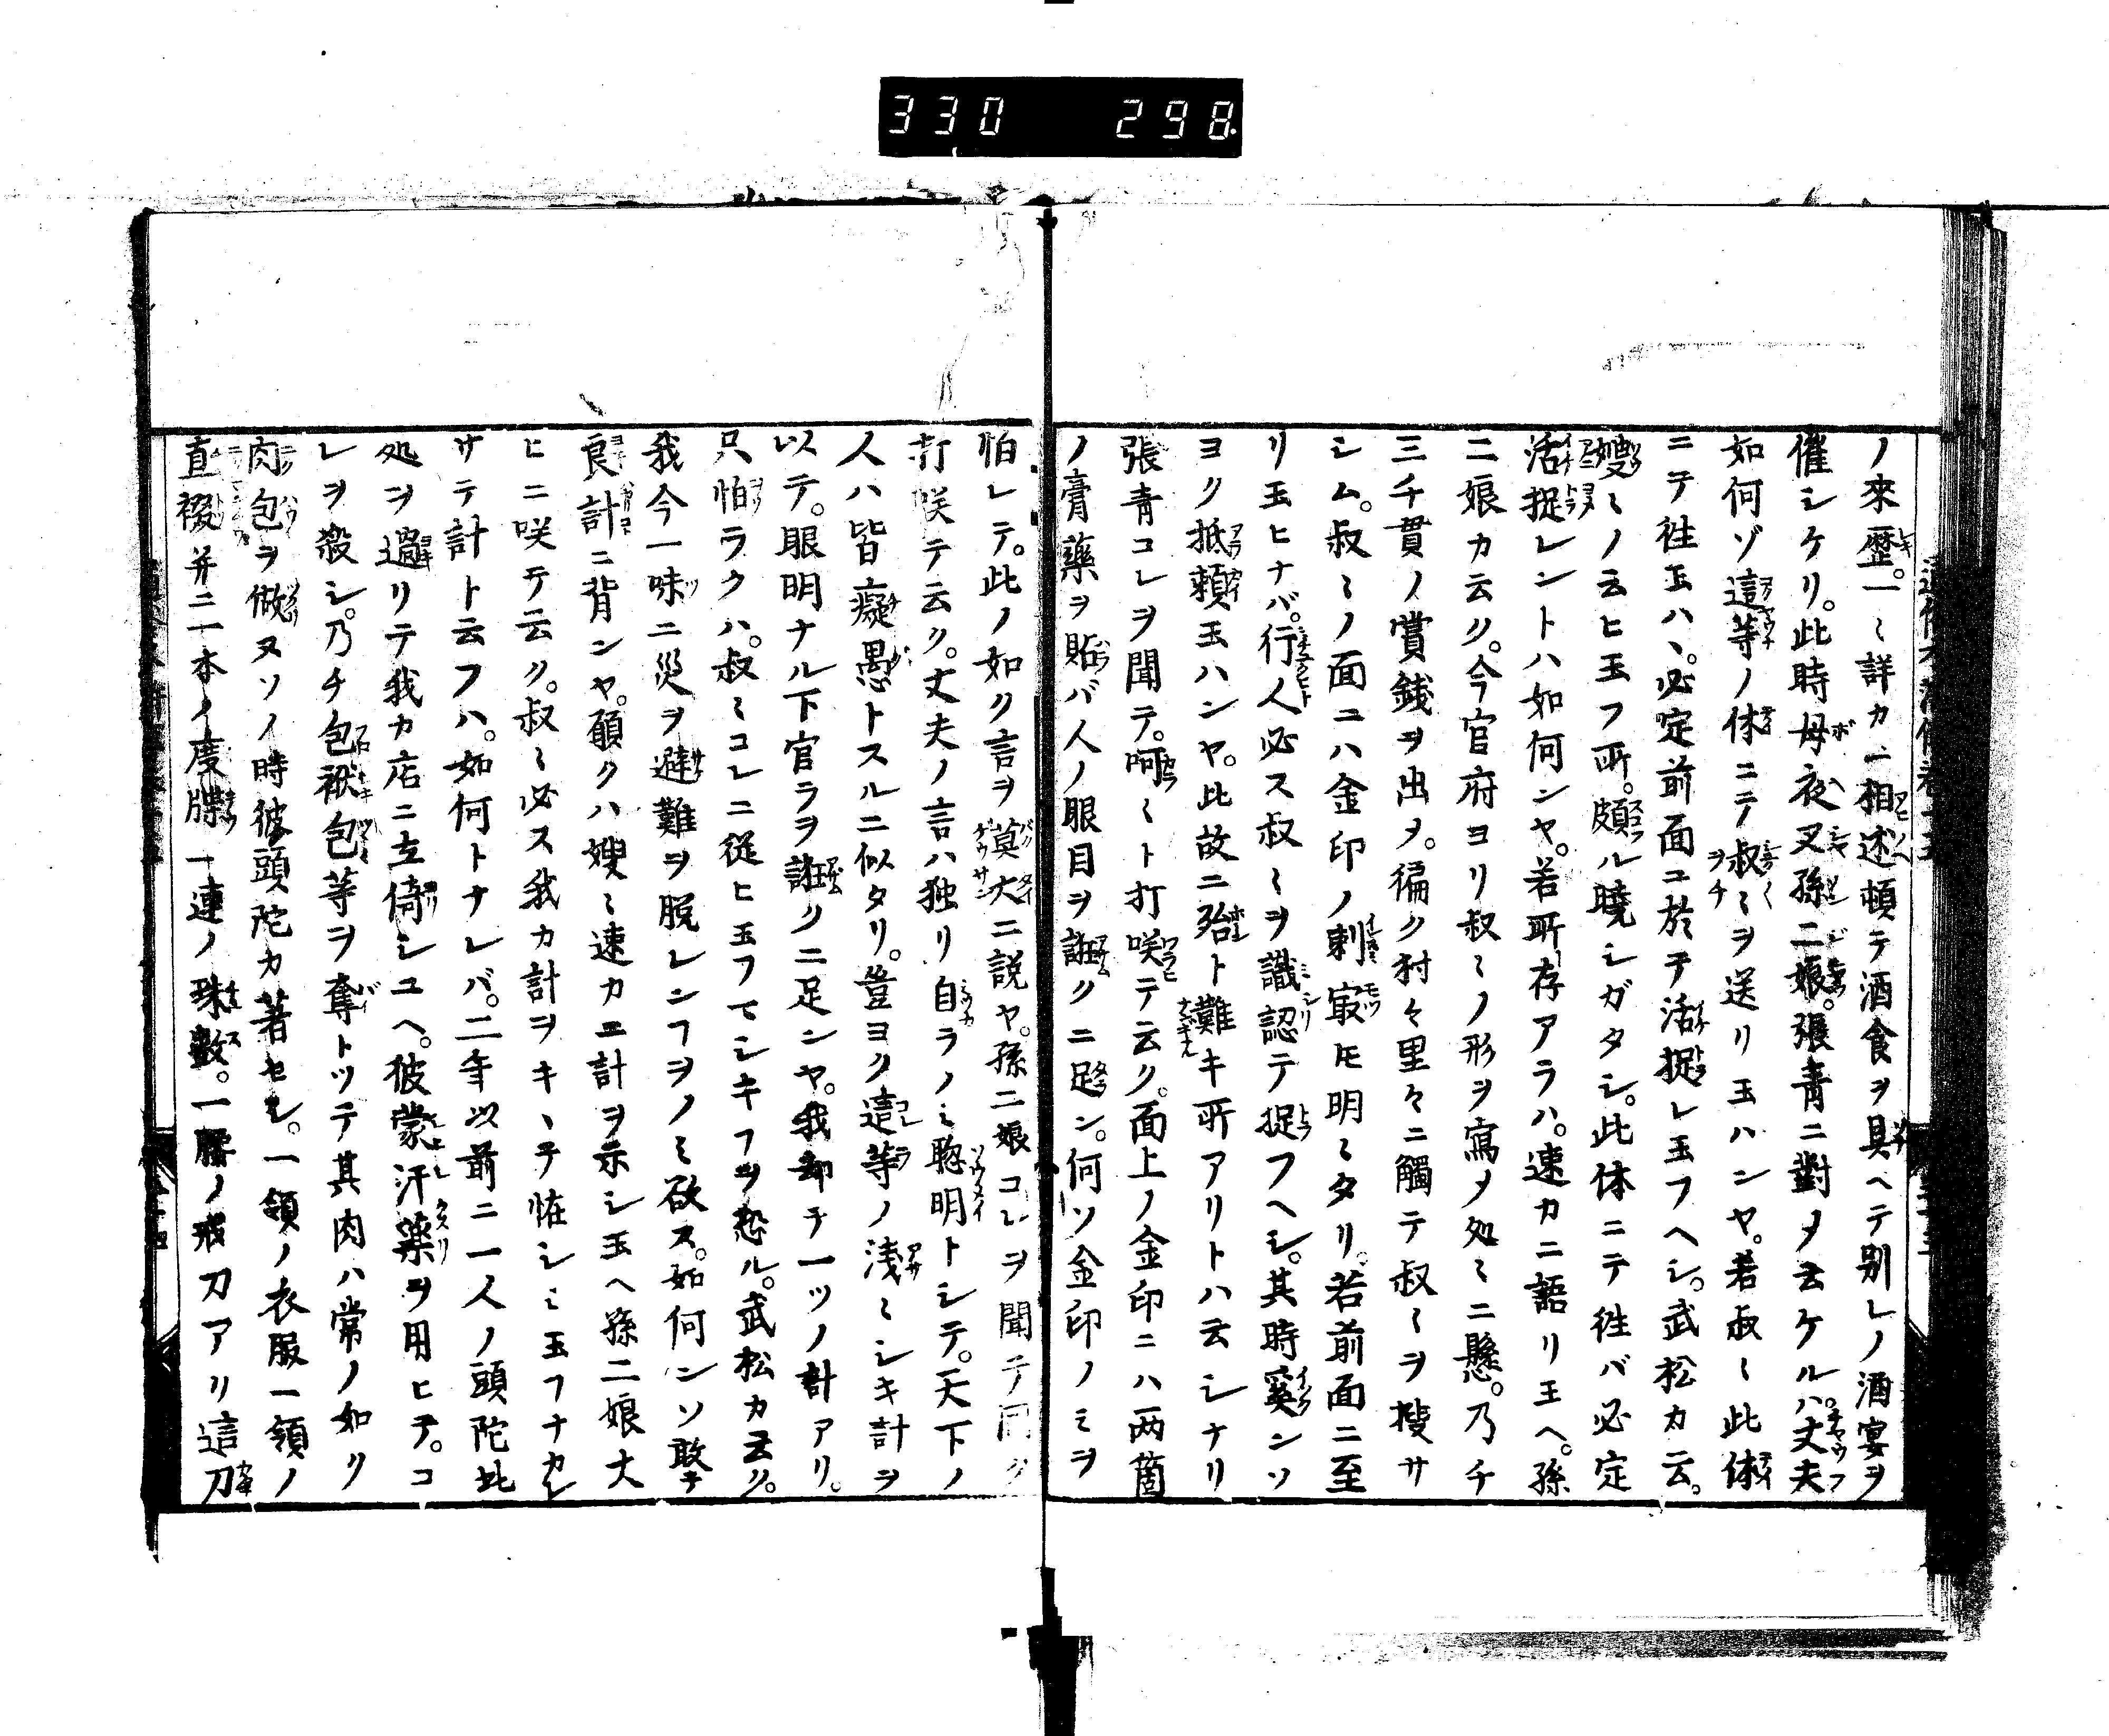 330 298
ノ來歴。一〻詳カニ相述頓テ酒食ヲ具ヘテ別レノ酒宴ヲ
催シケリ。此時母夜叉孫二娘。張青ニ對〆云ケルハ。丈夫
如何ゾ這等ノ体ニテ叔〻ヲ送リ玉ハンヤ。若叔〻此体
ニテ徃玉ハヽ。必定前面ニ於テ活捉レ玉フヘシ。武松カ云。
嫂〻ノ云ヒ玉フ所。頗ル曉シガタシ。此体ニテ徃バ必定
活捉レントハ如何ンヤ。若所存アラハ。速カニ語リ玉ヘ。孫
二娘カ云ク。今官府ヨリ叔〻ノ形ヲ寫〆処〻ニ懸。乃チ
三千貫ノ賞銭ヲ出〆。徧ク村々里々ニ觸テ叔〻ヲ搜サ
シム。叔〻ノ面ニハ金印ノ刺㝡モ明〻タリ。若前面ニ至
リ玉ヒナバ。行人必ス叔〻ヲ識認テ捉フヘシ。其時奚ンソ
ヨク抵頼玉ハンヤ。此故ニ殆ト難キ所アリトハ云シナリ
張青コレヲ聞テ。呵〻ト打咲テ云ク。面上ノ金印ニハ両箇
ノ膏藥ヲ貼バ人ノ眼目ヲ誑クニ足ン。何ソ金印ノミヲ
怕レテ。此ノ如ク言ヲ莫大ニ説ヤ。孫二娘コレヲ聞テ同ク
打咲テ云ク。丈夫ノ言ハ独リ自ラノミ聡明トシテ。天下ノ
人ハ皆癡愚トスルニ似タリ。豈ヨク這等ノ浅〻シキ計ヲ
以テ。眼明ナル下官ラヲ誑クニ足ンヤ。我却テ一ツノ計アリ。
只怕ラクハ。叔〻コレニ從ヒ玉フマシキヿヲ恐ル。武松カ云ク。
我今一味ニ災ヲ避難ヲ脱レンヿヲノミ欲ス。如何ンソ敢テ
良計ニ背ンヤ。願クハ嫂〻速カニ計ヲ示シ玉ヘ孫二娘大
ヒニ咲テ云ク。叔〻必ス我カ計ヲキヽテ恠シミ玉フナカレ
サテ計ト云フハ。如何トナレバ。二年以前ニ一人ノ頭陀此
処ヲ過リテ我カ店ニ立倚シユヘ。彼蒙汗藥ヲ用ヒテ。コ
レヲ殺シ。乃チ包袱包等ヲ奪トツテ其肉ハ常ノ如ク
肉包ヲ做ヌソノ時彼頭陀カ著セシ。一領ノ衣服一領ノ
直裰并ニ一本ノ度牒一連ノ珠數。一腰ノ戒刀アリ這刀